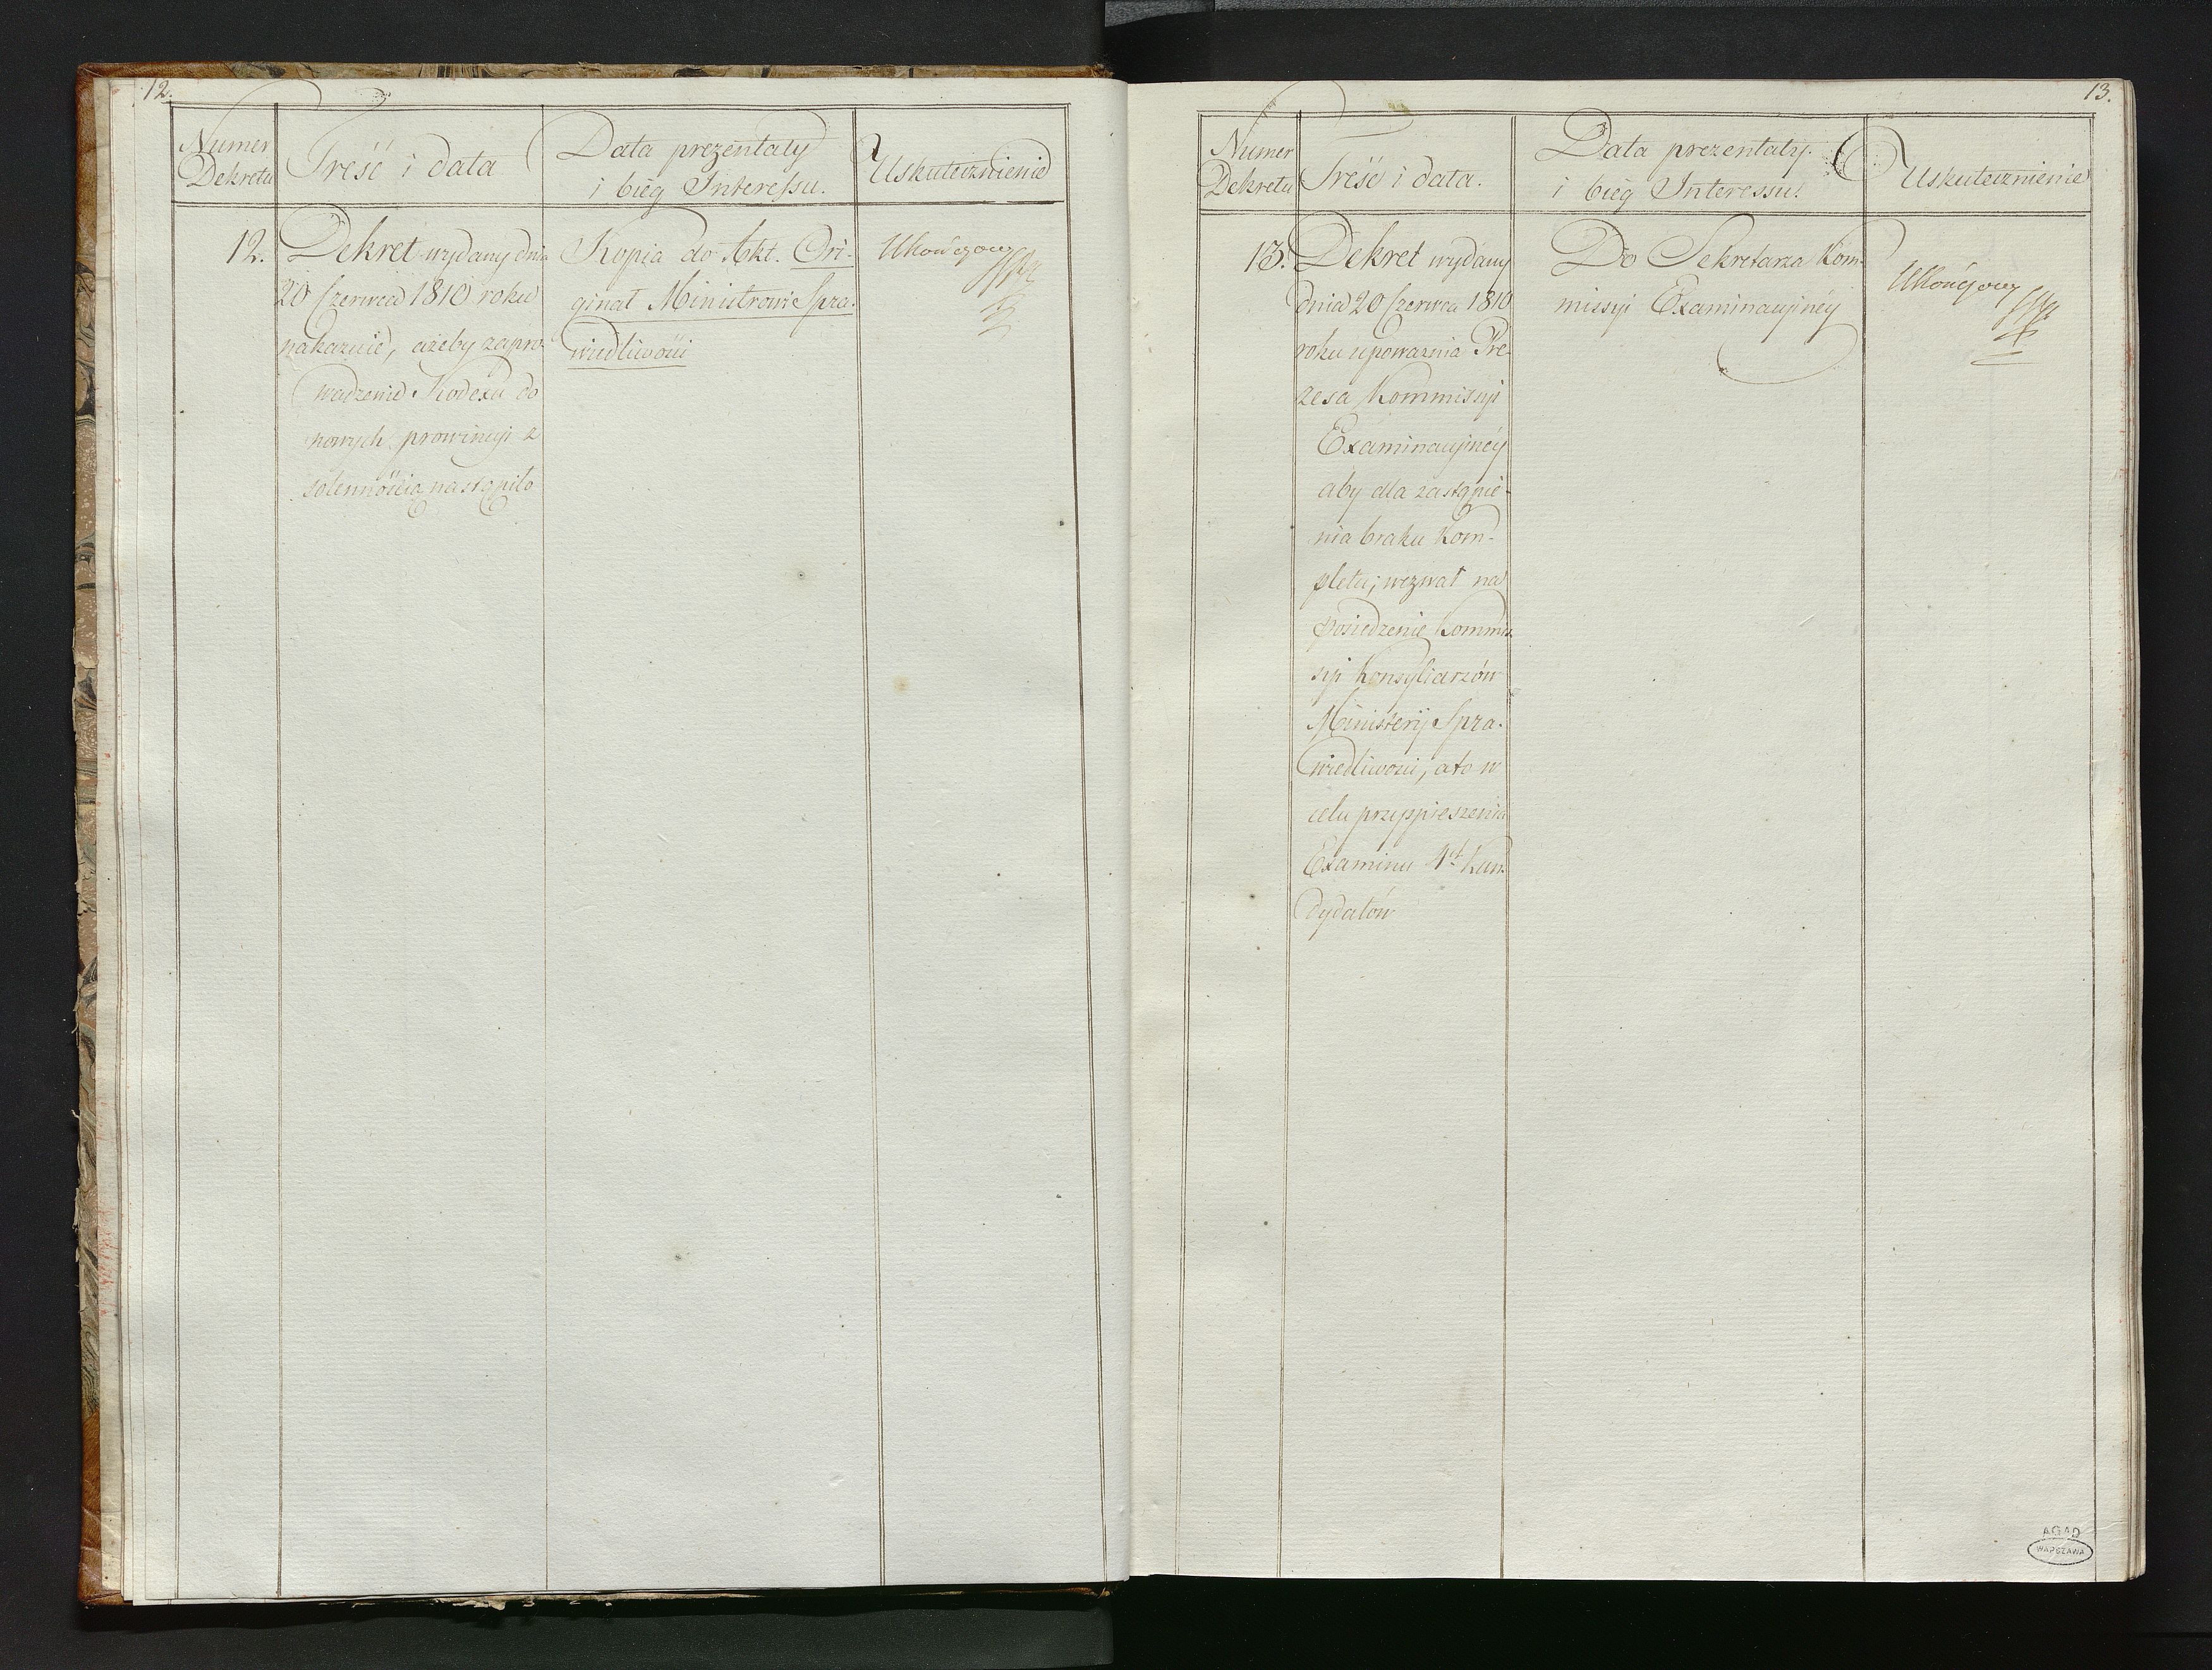 12.
Numer
Dekretu
Treść i data
Data prezentaty
i bieg Interessu.
Uskutecznienie
12.
Dekret wydany dnia
20 Czerwca 1810 roku
nakazuie, ażeby zapro-
wadzenie Kodexu do
nowych prowincyi z
solennością nastąpiło
Kopia do Akt. Ori-
ginał Ministrowi Spra-
wiedliwości
Ukończony
13.
Numer
Dekretu
Treść i data.
Data prezentaty.
i bieg Interessu.
Uskutecznienie
13.
Dekret wydany
dnia 20 Czerwca 1810
roku upoważnia Pre-
zesa Kommissyi
Examinacyinéy
aby dla zastąpie-
nia braku Kom-
pletu, wezwał na
posiedzenie Kommis
syi Konsyliarzów
Ministerij Spra-
wiedliwości, a to w
celu przyspieszenia
Examinu 4ch Kan-
dydatów
Do Sekretarza Kom-
missyi Examinacyinéy
Ukończony
AGAD
WARSZAWA